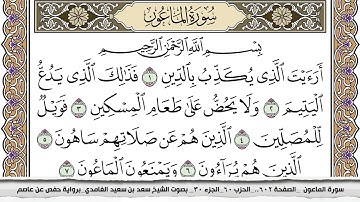 سُورَةُ المَاعُونِ
بِسْمِ اللَّهِ الرَّحْمَٰنِ الرَّحِيمِ
أَرَءَيْتَ الَّذِي يُكَذِّبُ بِالدِّينِ ١ فَذَٰلِكَ الَّذِي يَدُعُّ
الْيَتِيمَ ٢ وَلَا يَحُضُّ عَلَىٰ طَعَامِ الْمِسْكِينِ ٣ فَوَيْلٌ
لِّلْمُصَلِّينَ ٤ الَّذِينَ هُمْ عَن صَلَاتِهِمْ سَاهُونَ ٥
الَّذِينَ هُمْ يُرَآءُونَ ٦ وَيَمْنَعُونَ الْمَاعُونَ ٧
سورة الماعون _ الصفحة ٦٠٢ _ الحزب ٦٠ _ الجزء ٣٠ _ بصوت الشيخ سعد بن سعيد الغامدي _ برواية حفص عن عاصم